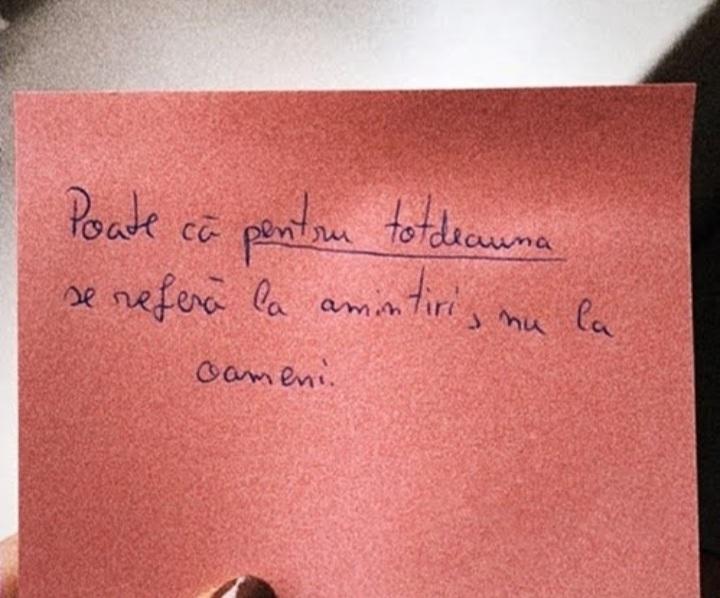 Poate că pentru totdeauna
se referă la amintiri, nu la
oameni.